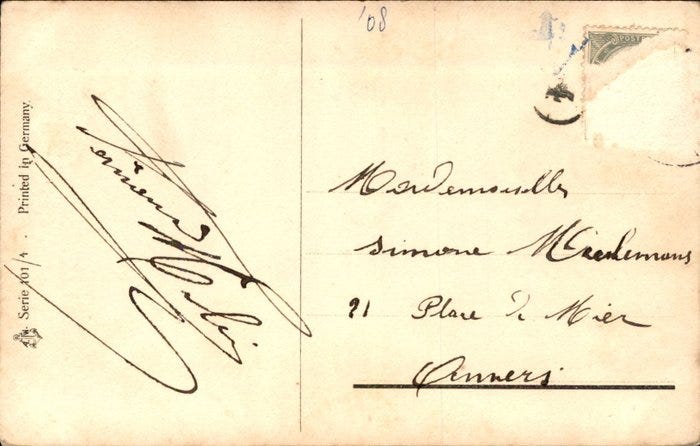 '08
POST
Mademoiselle
Simone
21 Place de Meir
Anvers
Serie 101/4 . Printed in Germany.